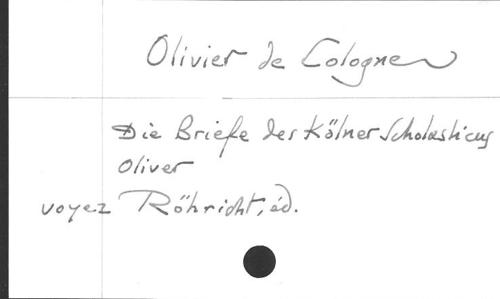 Olivier de Cologne
Die Briefe des Kölner Scholasticus
Oliver
voyez Röhricht, éd.